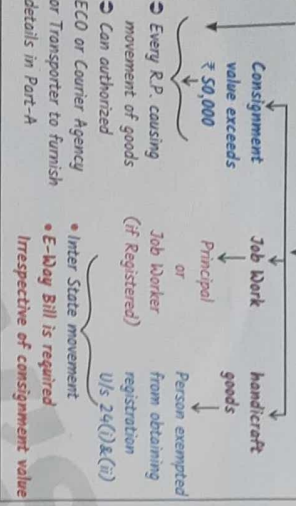 Consignment
value exceeds
₹ 50,000
➲ Every R.P. causing
movement of goods
➲ Can authorized
ECO or Courier Agency
or Transporter to furnish
details in Part-A
Job Work
Principal
or
Job Worker
(if Registered)
handicraft
goods
Person exempted
from obtaining
registration
U/s 24(i)&(ii)
• Inter State movement
• E-Way Bill is required
Irrespective of consignment value